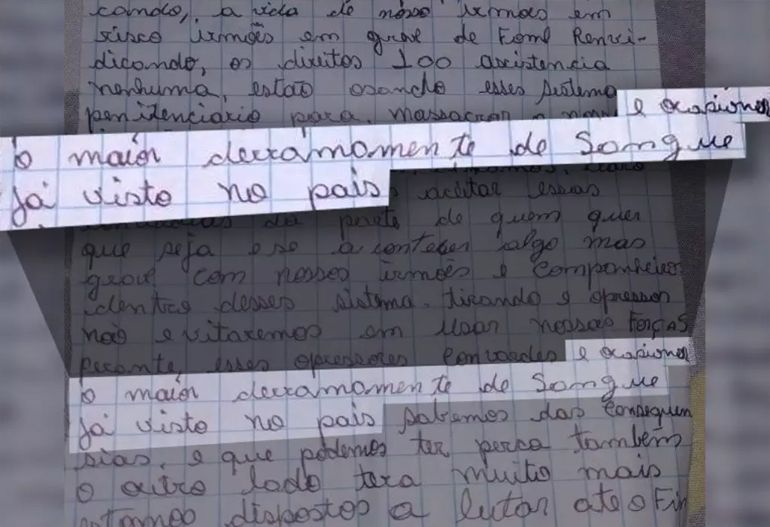 cando, a vida de nosso irmãos em
risco irmãos em greve de Fome Renvi-
dicando, os direitos 100 assistencia
nenhuma, estão osando esses sistema
penitenciario para, massacrar o e ocasionar
o maiór derramamente de Sangue
já visto no pais aceitar essas
da parte de quem quer
que seja e se acontecer algo mas
grave com nossos irmões e companheiros
dentro desses sistema. tirando e opressor
não evitaremos em usar nossas Forças
perante, esses opressores covardes e ocasionar
o maiór derramamente de Sangue
já visto no pais sabemos das consequen
sias, e que podemos ter perca também
o outro lado tera muito mais
estamos dispostos a lutar até o Fim